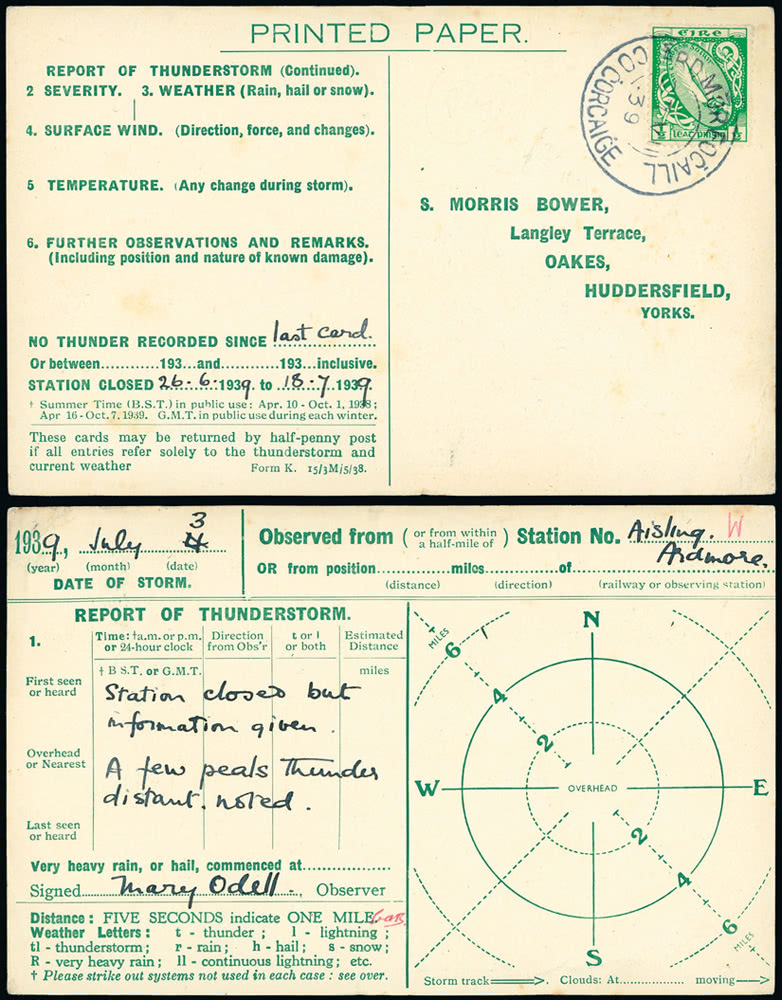 PRINTED PAPER.
REPORT OF THUNDERSTORM (Continued).
2 SEVERITY. 3. WEATHER (Rain, hail or snow).
4. SURFACE WIND. (Direction, force, and changes).
5 TEMPERATURE. (Any change during storm).
6. FURTHER OBSERVATIONS AND REMARKS.
(Including position and nature of known damage).
NO THUNDER RECORDED SINCE last card.
Or between............193...and............193...inclusive.
STATION CLOSED 26-6-1939. to 18-7.1939
† Summer Time (B.S.T.) in public use: Apr. 10 - Oct. 1, 1938;
Apr 16 - Oct. 7, 1939. G.M.T. in public use during each winter.
These cards may be returned by half-penny post
if all entries refer solely to the thunderstorm and
current weather Form K. 15/3M/5/38.
éire
CO CORCAIGE
S. MORRIS BOWER,
Langley Terrace,
OAKES,
HUDDERSFIELD,
YORKS.
1939, July 3 4
(year) (month) (date)
DATE OF STORM.
Observed from ( or from within a half-mile of ) Station No. Aisling. W
Ardmore.
OR from position............miles............of............
(distance) (direction) (railway or observing station)
REPORT OF THUNDERSTORM.
1. Time: †a.m. or p.m. or 24-hour clock Direction from Obs'r t or l or both Estimated Distance
† B S.T. or G.M.T. miles
First seen or heard
Station closed but
information given.
Overhead or Nearest
A few peals thunder
distant. noted.
Last seen or heard
Very heavy rain, or hail, commenced at..................
Signed Mary Odell., Observer
Distance: FIVE SECONDS indicate ONE MILE
Weather Letters: t - thunder; l - lightning;
tl - thunderstorm; r - rain; h - hail; s - snow;
R - very heavy rain; ll - continuous lightning; etc.
† Please strike out systems not used in each case: see over.
N
MILES
6
4
2
W OVERHEAD E
2
4
6
MILES
S
Storm track Clouds: At................ moving